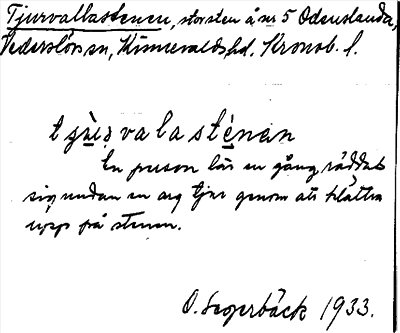 Tjurvallastenen, storsten å nr 5 Odenslanda,
Vederslövs sn, Kinnevalds hd. Kronob. l.
En person lär en gång räddat
sig undan en arg tjur genom att klättra
upp på stenen.
O. Segerbäck 1933.